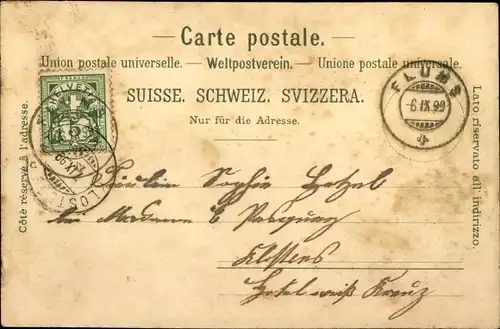 — Carte postale. —
Union postale universelle. — Weltpostverein. — Unione postale universale.
SUISSE. SCHWEIZ. SVIZZERA.
Nur für die Adresse.
Côté réservé à l'adresse.
Lato riservato all' indirizzo.
FLUMS
-6 IX 99
HELVETIA
Fräulein Sophie
Madame
Klosters
Hotel weiß Kreuz